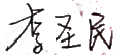 李圣民